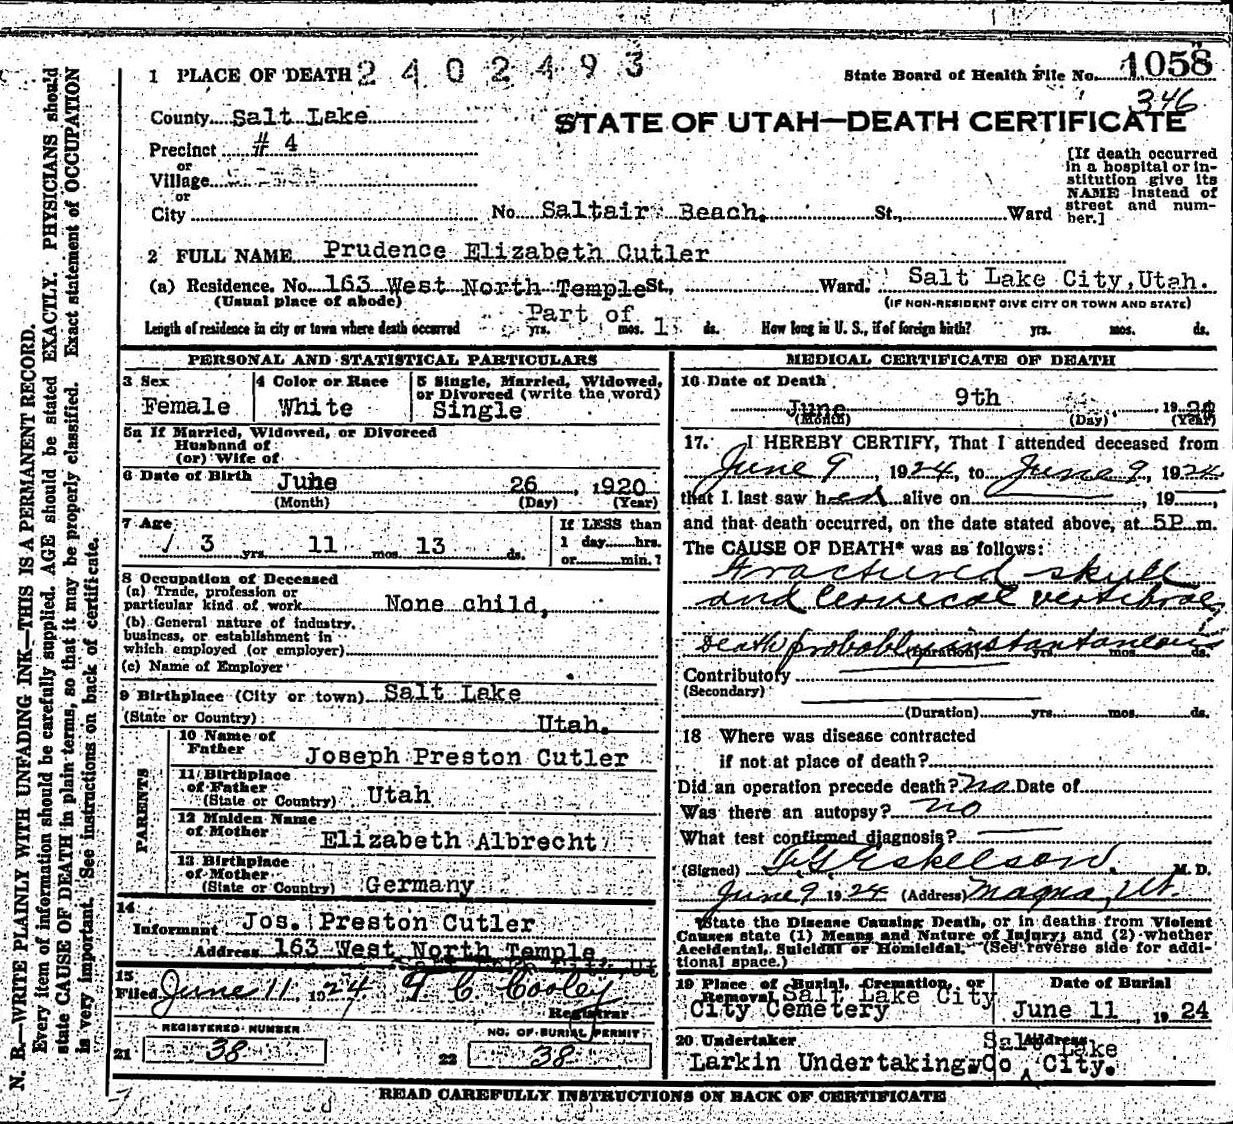 1 PLACE OF DEATH 2402493
State Board of Health File No. 1058
346
County Salt Lake
STATE OF UTAH—DEATH CERTIFICATE
Precinct # 4
or
Village
or
City No. Saltair Beach. St., Ward
[If death occurred in a hospital or in-
stitution give its
NAME instead of
street and num-
ber.]
2 FULL NAME Prudence Elizabeth Cutler
(a) Residence. No. 163 West North Temple St., Ward. Salt Lake City, Utah.
(Usual place of abode) (IF NON-RESIDENT GIVE CITY OR TOWN AND STATE)
Length of residence in city or town where death occurred yrs. Part of mos. 1 ds. How long in U. S., if of foreign birth? yrs. mos. ds.
PERSONAL AND STATISTICAL PARTICULARS
3 Sex
Female
4 Color or Race
White
5 Single, Married, Widowed,
or Divorced (write the word)
Single
5a If Married, Widowed, or Divorced
Husband of
(or) Wife of
6 Date of Birth June 26, 1920
(Month) (Day) (Year)
7 Age
3 yrs. 11 mos. 13 ds.
If LESS than
1 day hrs.
or min.?
8 Occupation of Deceased
(a) Trade, profession or
particular kind of work None child,
(b) General nature of industry,
business, or establishment in
which employed (or employer)
(c) Name of Employer
9 Birthplace (City or town) Salt Lake
(State or Country) Utah.
PARENTS
10 Name of
Father Joseph Preston Cutler
11 Birthplace
of Father
(State or Country) Utah
12 Maiden Name
of Mother Elizabeth Albrecht
13 Birthplace
of Mother
(State or Country) Germany
14
Informant Jos. Preston Cutler
Address 163 West North Temple
15
Filed June 11, 1924 Cooley
Registrar
REGISTERED NUMBER
21 38
NO. OF BURIAL PERMIT
22 38
MEDICAL CERTIFICATE OF DEATH
16 Date of Death
June 9th 19
(Month) (Day) (Year)
17. I HEREBY CERTIFY, That I attended deceased from
June 9, 1924, to June 9, 1924
that I last saw her alive on , 19 ,
and that death occurred, on the date stated above, at 5P m.
The CAUSE OF DEATH* was as follows:
Fractured skull
and cervical vertebrae,
Death probably instantaneous
(Duration) yrs. mos. ds.
Contributory
(Secondary)
(Duration) yrs. mos. ds.
18 Where was disease contracted
if not at place of death?
Did an operation precede death? No Date of
Was there an autopsy? no
What test confirmed diagnosis?
(Signed) Eskelson. M. D.
June 9 1924 (Address) Magna, Ut.
*State the Disease Causing Death, or in deaths from Violent
Causes state (1) Means and Nature of Injury; and (2) whether
Accidental, Suicidal or Homicidal. (See reverse side for addi-
tional space.)
19 Place of Burial, Cremation, or
Removal Salt Lake City
City Cemetery
Date of Burial
June 11, 1924
20 Undertaker
Larkin Undertaking Co
Address
Salt Lake
City.
READ CAREFULLY INSTRUCTIONS ON BACK OF CERTIFICATE
N. B.—WRITE PLAINLY WITH UNFADING INK—THIS IS A PERMANENT RECORD.
Every item of information should be carefully supplied. AGE should be stated EXACTLY. PHYSICIANS should
state CAUSE OF DEATH in plain terms, so that it may be properly classified. Exact statement of OCCUPATION
is very important. See instructions on back of certificate.